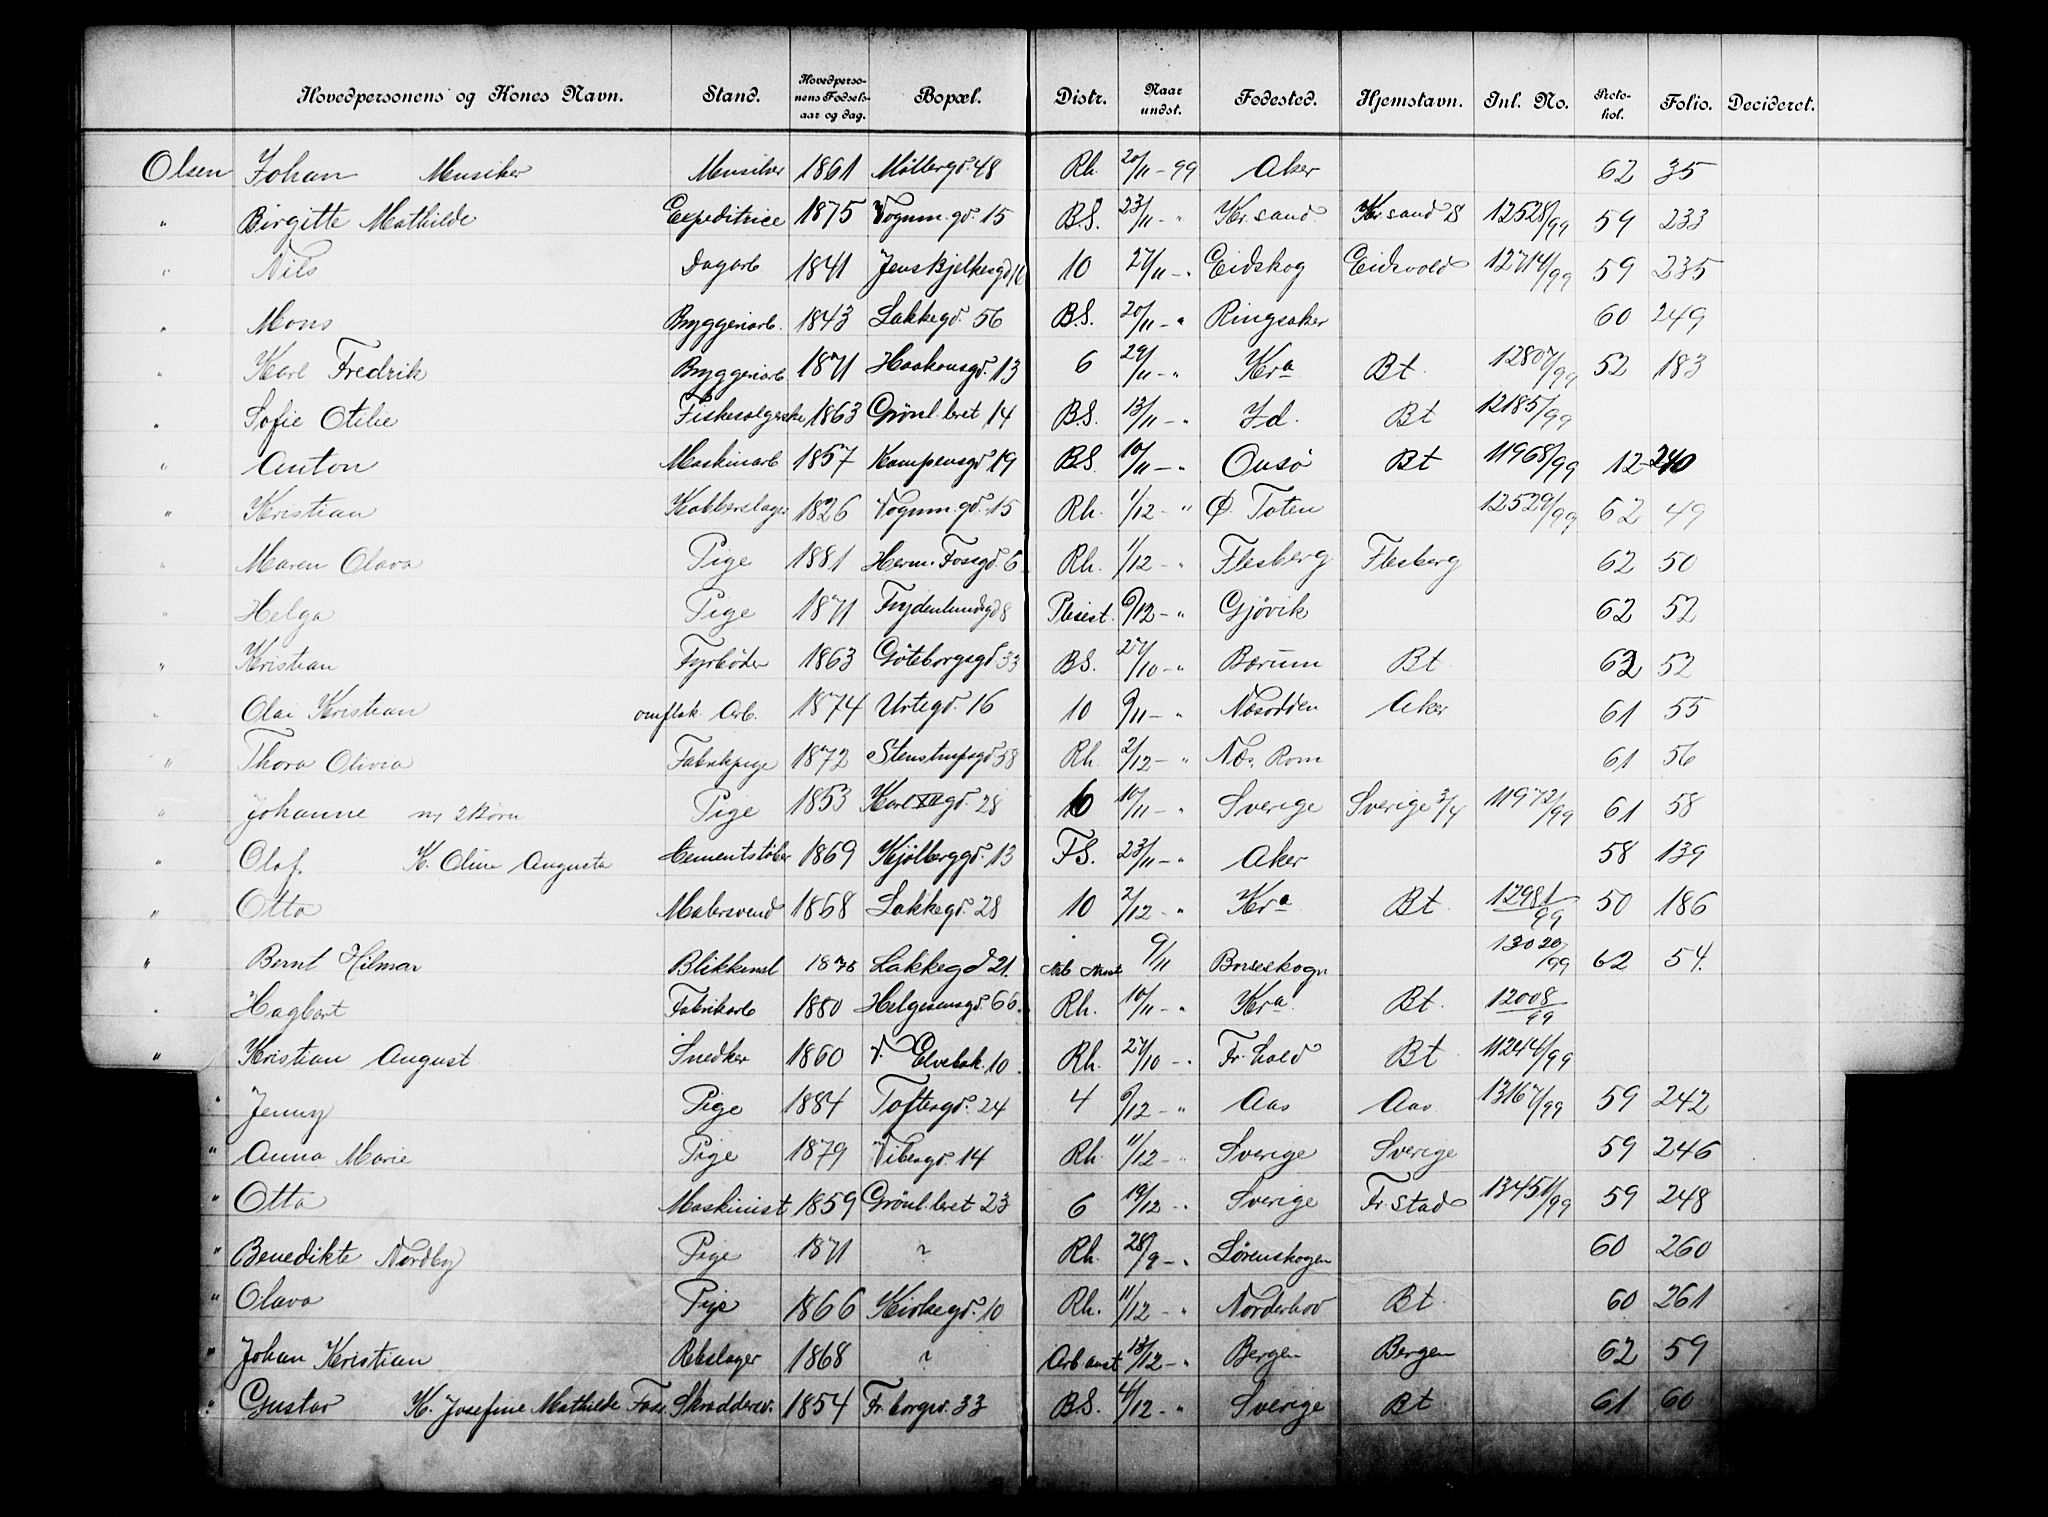 Hovedpersonens og Kones Navn. Stand. Hovedpersonens Fødselsaar og dag. Bopæl. Distr. Naar undst. Fødested. Hjemstavn. Inl. No. Protokol. Folio. Decideret.
Olsen Johan Musiker Musiker 1861 Møllergd. 48 Rh. 20/11 - 99 Aker 62 35
" Birgitte Mathilde Expeditrice 1875 Vognm. gd. 15 B.S. 23/11 - " Kr. sand. Kr. sand S 12528/99 59 233
" Nils Dagarb 1841 Jens Bjelkesgd 10 27/11 - " Eidskog Eidsvold 12714/99 59 235
" Mons Bryggeriarb. 1843 Lakkegd. 56 B.S. 20/11 - " Ringsaker 60 249
" Karl Fredrik Bryggeriarb 1871 Haakonsgd. 13 6 29/11 - " Kra Bt. 12807/99 52 183
" Sofie Otilie Fiskesælgerske 1863 Grønl. leret 14 B.S. 13/11 - " Id. Bt 12185/99
" Anton Maskinarb 1857 Kampensgd 19 B.S. 10/11 - " Onsø Bt 11968/99 12 240
" Kristian Kobberslager 1826 Vognm. gd. 15 Rh. 1/12 - " Ø. Toten 12529/99 62 49
" Maren Olava Pige 1881 Herm. Fossgd. 6 Rh. 1/12 - " Flesberg Flesberg 62 50
" Helga Pige 1871 Frydenlundsgd 8 Plejest. 6/12 - " Gjøvik 62 52
" Kristian Fyrbøder 1863 Göteborgsgd. 33 B.S. 27/10 - " Bærum Bt. 62 52
" Olai Kristian omflak. Arb. 1874 Urtegd. 16 10 9/11 - " Næsodden Aker 61 55
" Thora Olivia Fabrikpige 1872 Stenstrupsgd 58 Rh. 2/12 - " Næs. Rom 61 56
" Johanne m/ 2 Børn Pige 1853 Karl XII gd. 28 6 10/11 - " Sverige Sverige 3/4 11972/99 61 58
" Olaf. K. Oline Augusta Cementstøber 1869 Kjølberggd. 13 F.S. 23/11 - " Aker 58 139
" Otto Malersvend 1868 Lakkegd. 28 10 2/12 - " Kra Bt. 12981/99 50 186
" Bernt Hilmar Blikkensl 1875 Lakkegd 21. 9/11 13020/99 62 54.
" Hagbart Fabrikarb 1880 Helgesensgd. 66. Rh. 10/11 - " Kra Bt. 12008/99
" Kristian August. Snedker 1860 V. Elvebak. 10. Rh. 27/10 - " Fr. hald Bt 11244/99
" Jenny Pige 1884 Toftesgd. 24 4 9/12 - " Aas Aas 13167/99 59 242
" Anna Marie Pige 1879 Vibesgd. 14 Rh. 11/12 - " Sverige Sverige 59 246
" Otto Maskinist 1859 Grönl. leret 23 6 19/12 - " Sverige Fr. stad 13451/99 59 248
" Benedikte Nordby Pige 1871 ? Rh. 28/9 - " Lørenskogen 60 260
" Olava Pige 1866 Kirkegd. 10 Rh. 11/12 - " Norderhov Bt. 60 261
" Johan Kristian Rebslager 1868 ? Arb anst 13/12 - " Bergen Bergen 62 59
" Gustav K. Josefine Mathilde Foss. Skræddersv. 1854 Fr. borgv. 33 B.S. 4/12 - " Sverige Bt. 61 60